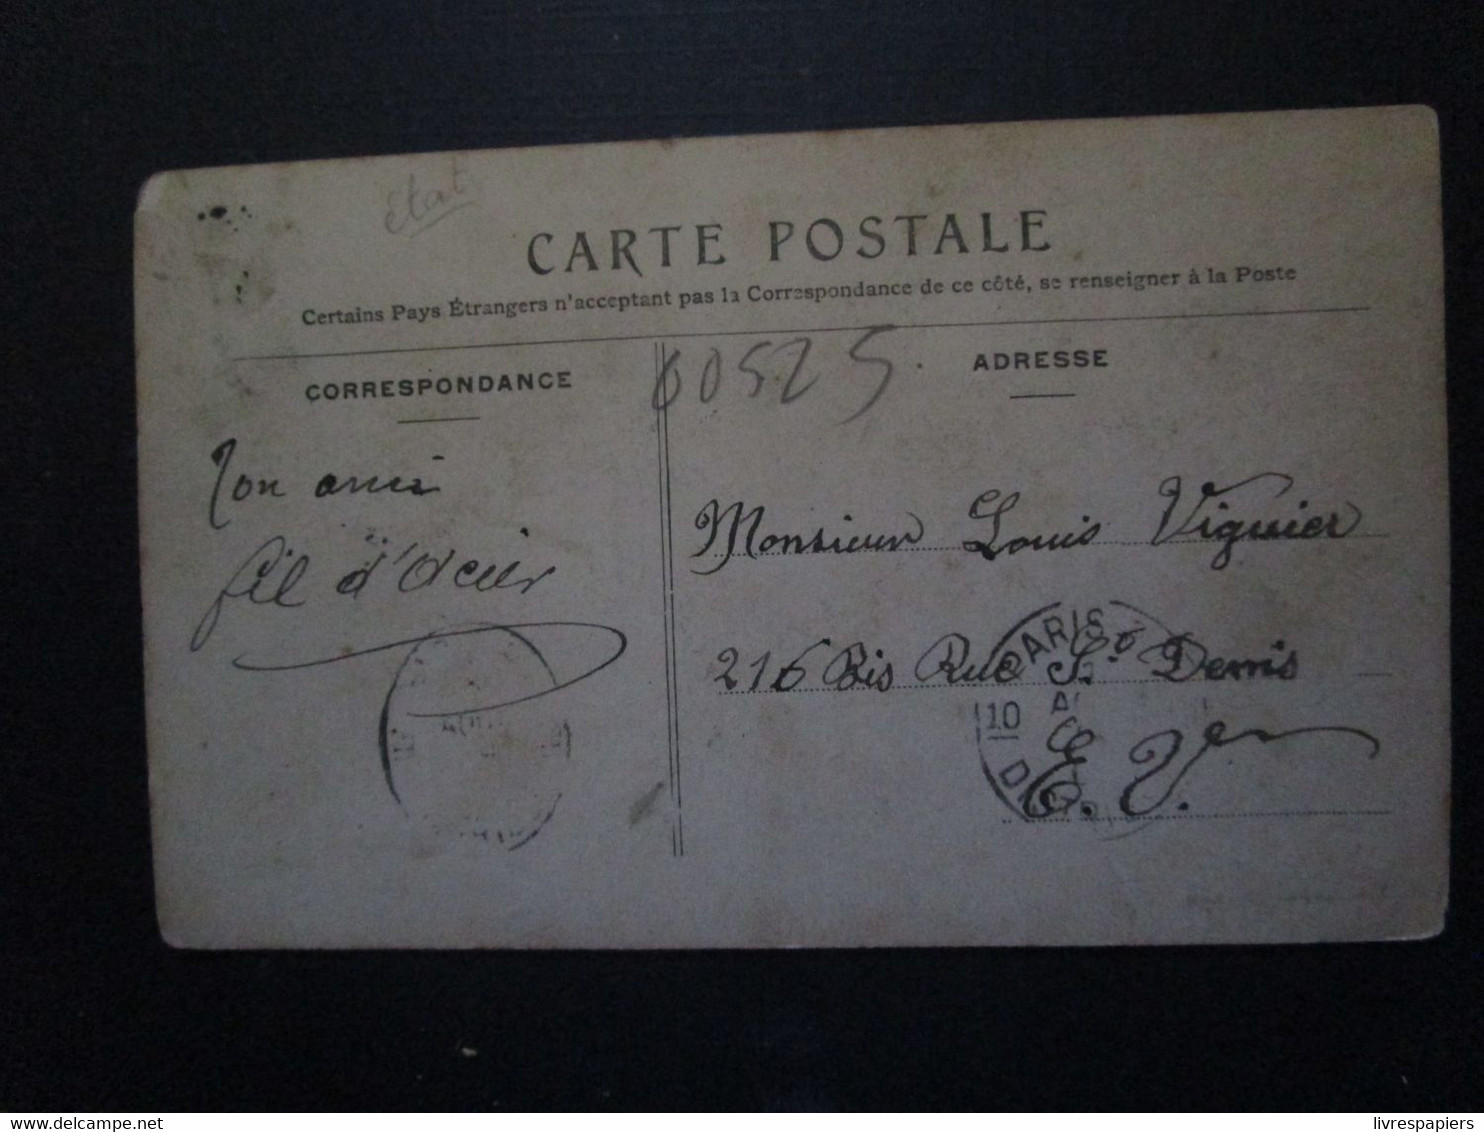 état
CARTE POSTALE
Certains Pays Étrangers n'acceptant pas la Correspondance de ce côté, se renseigner à la Poste
CORRESPONDANCE
60525
ADRESSE
Ton ami
fil d'Acier
Monsieur Louis Viguier
216 Bis Rue St Denis
E. V.
PARIS
10
delcampe.net
livrespapiers